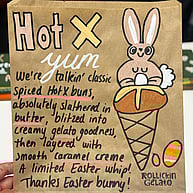 Hot X
yum
We're talkin' classic
Spiced Hot X buns,
absolutely slathered in
butter, blitzed into
creamy gelato goodness,
then layered with
smooth caramel creme
A limited Easter whip!
Thanks Easter bunny!
ROLLICKIN
GELATO